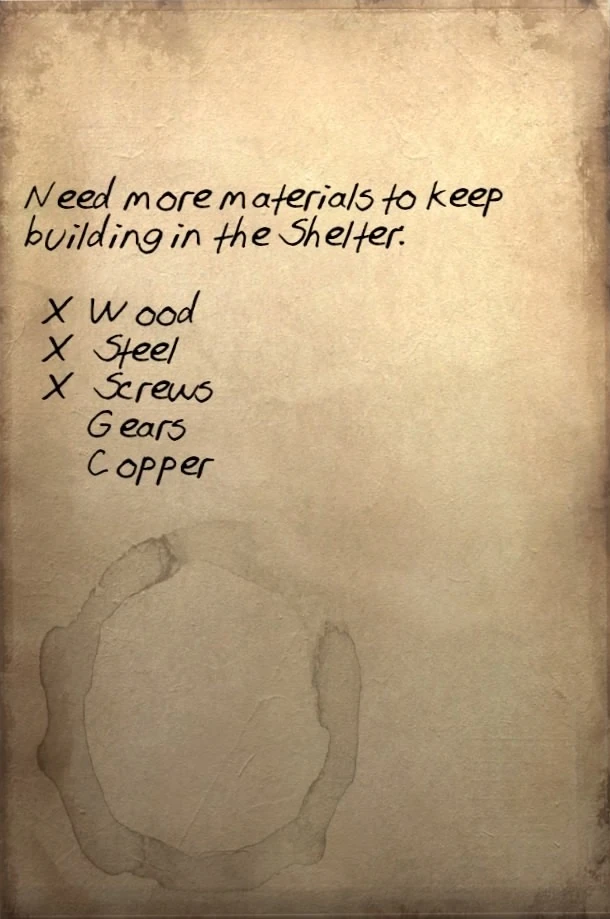 Need more materials to keep
building in the Shelter.
X Wood
X Steel
X Screws
Gears
Copper